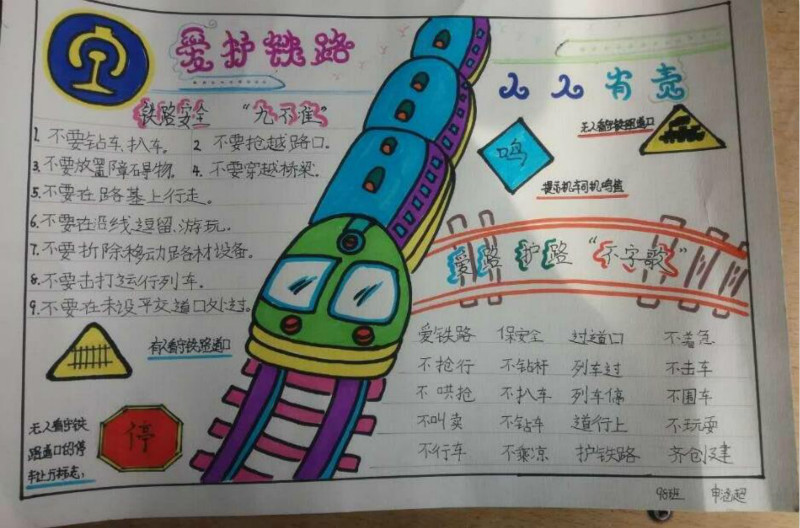 爱护铁路
人人有责
铁路安全 "九不准"
1. 不要钻车、扒车. 2 不要抢越路口.
3. 不要放置障碍物. 4. 不要穿越桥梁.
5. 不要在路基上行走.
6. 不要在沿线逗留.游玩.
7. 不要折除移动路材设备.
8. 不要击打运行列车.
9. 不要在未设平交道口处过.
有人看守铁路道口
无人看守铁
路道口的停
车让行标志:
停
无人看守铁路道口
鸣
提示机车司机鸣笛
爱路 护路 "不字歌"
爱铁路 保安全 过道口 不着急
不抢行 不钻杆 列车过 不击车
不哄抢 不扒车 列车停 不围车
不叫卖 不钻车 道行上 不玩耍
不行车 不乘凉 护铁路 齐创建
98班